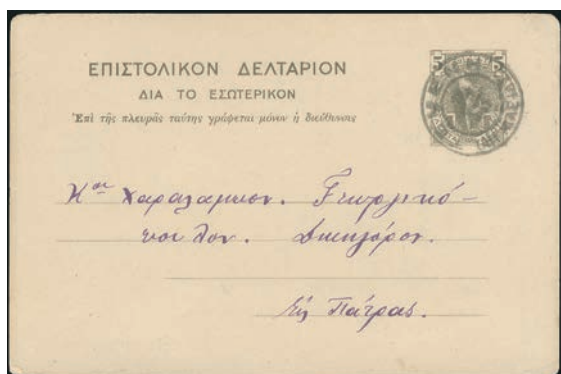 ΕΠΙΣΤΟΛΙΚΟΝ ΔΕΛΤΑΡΙΟΝ
5 5
ΔΙΑ ΤΟ ΕΣΩΤΕΡΙΚΟΝ
Ἐπὶ τῆς πλευρᾶς ταύτης γράφεται μόνον ἡ διεύθυνσις
Κον Χαραλαμπον. Γεωργικό-
πουλον. Δικηγόρον.
Εἰς Πάτρας.